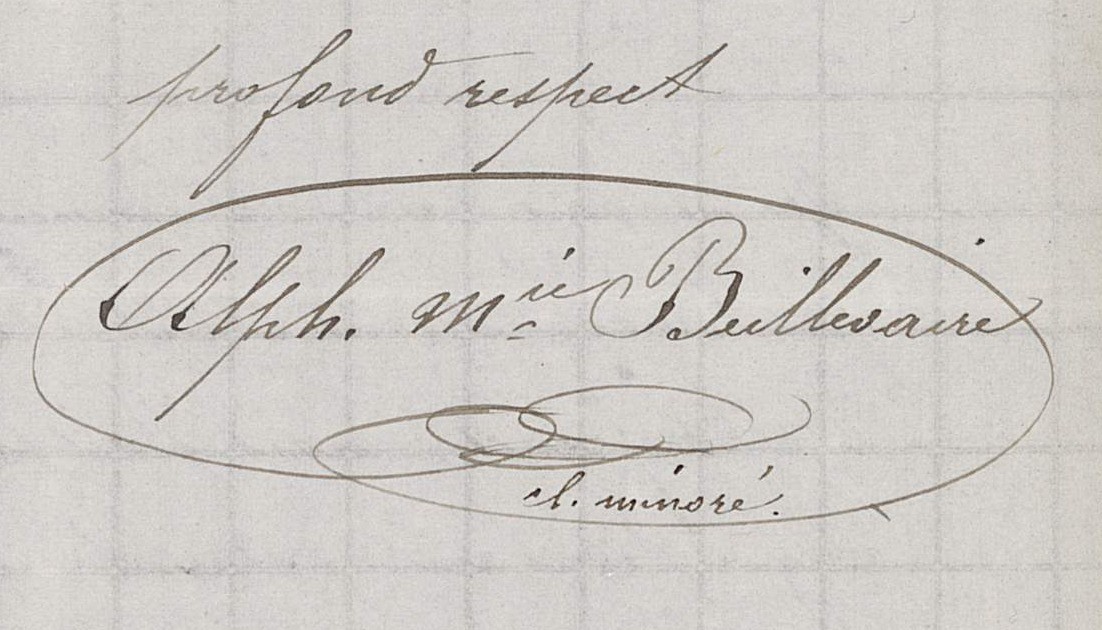 profond respect
Alph. Mie Beillevaire
cl. minoré.